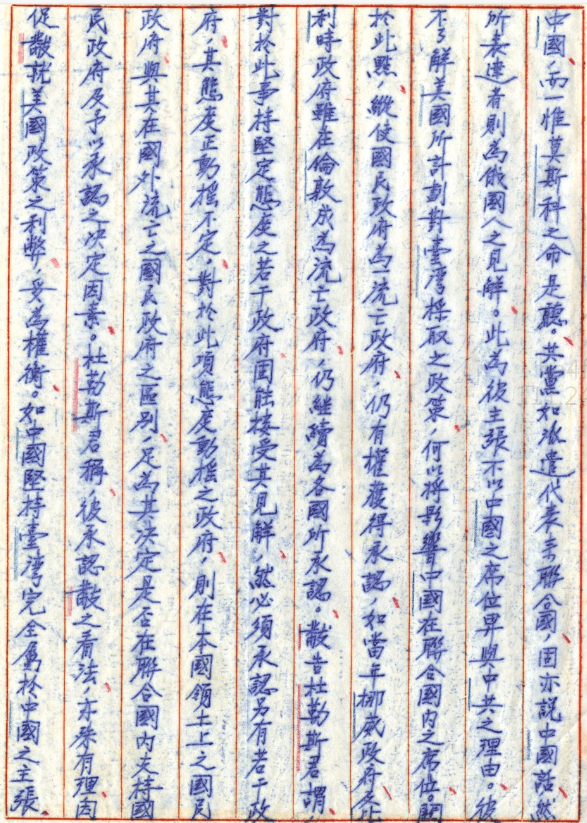 中國，而一惟莫斯科之命是聽。共黨如派遣代表來聯合國，固亦說中國話，然
所表達者則為俄國人之見解。此為彼主張不以中國之席位畀與中共之理由。彼
不了解美國所計劃對臺灣採取之政策，何以將影響中國在聯合國內之席位。關
於此點，縱使國民政府為一流亡政府，仍有權獲得承認，如當年挪威政府及比
利時政府雖在倫敦成為流亡政府，仍繼續為各國所承認。蔣告杜勒斯君謂，
對於此事持堅定態度之若干政府固能接受其見解，然必須承認另有若干政
府，其態度正動搖不定，對於此項態度動搖之政府，則在本國領土上之國民
政府與其在國外流亡之國民政府之區別，足為其決定是否在聯合國內支持國
民政府及予以承認之決定因素。杜勒斯君稱，彼承認之看法，亦殊有理，因
促就美國政策之利弊，妥為權衡。如中國堅持臺灣完全屬於中國之主張，